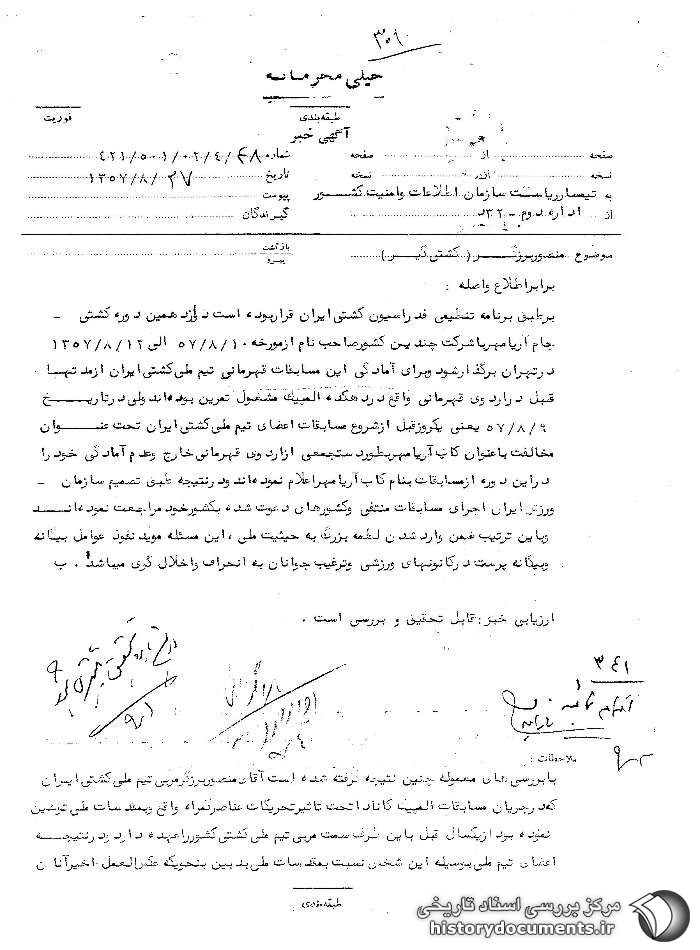 ۳۵۹۰
خیلی محرمانه
طبقه‌بندی
فوریت
آگهی خبر
صفحه از صفحه
شماره ۴۲۱/۵۰۱/۰۲/۴/۶۸
نسخه
نسخه
تاریخ ۱۳۵۷/۸/۲۷
به تیمسار ریاست سازمان اطلاعات وامنیت کشور
پیوست
از اداره دوم - ۳۲د
گیرندگان
موضوع منصور برزگر (کشتی گیر)
بازگشت
پیرو
برابر اطلاع واصله :
برطبق برنامه تنظیمی فدراسیون کشتی ایران قراربوده است دوازدهمین دوره کشتی -
جام آریامهر باشرکت چندین کشورصاحب نام ازمورخه ۵۷/۸/۱۰ الی ۱۳۵۷/۸/۱۲
درتهران برگذارشود وبرای آمادگی این مسابقات قهرمانی تیم ملی کشتی ایران ازمدتها
قبل دراردوی قهرمانی واقع دردهکده المپیک مشغول تمرین بوده‌اند ولی درتاریخ
۵۷/۸/۹ یعنی یکروزقبل ازشروع مسابقات اعضای تیم ملی کشتی ایران تحت عنوان
مخالفت باعنوان کاپ آریامهر بطوردستجمعی ازاردوی قهرمانی خارج وعدم آمادگی خود را
دراین دوره ازمسابقات بنام کاپ آریامهر اعلام نموده‌اند ودرنتیجه طبق تصمیم سازمان -
ورزش ایران اجرای مسابقات منتفی وکشورهای دعوت شده بکشورخود مراجعت نموده‌اند
وباین ترتیب ضمن واردشدن لطمه بزرگ به حیثیت ملی ، این مسئله موید نفوذ عوامل بیگانه
وبیگانه پرست درکانونهای ورزشی وترغیب جوانان به انحراف واخلال گری میباشد . ب
ارزیابی خبر : قابل تحقیق و بررسی است .
۳۴۱
ملاحظات :
بابررسی‌های معموله چنین نتیجه گرفته شده است آقای منصوربرزگر مربی تیم ملی کشتی ایران
که درجریان مسابقات المپیک کانادا تحت تاثیرتحریکات عناصرگمراه واقع وبمقدسات ملی توهین
نموده بود ازیکسال قبل باین طرف سمت مربی تیم ملی کشتی کشور را عهده دار و درنتیجه
اعضای تیم ملی بوسیله این شخص نسبت بمقدسات ملی بدبین بنحویکه عکس‌العمل اخیرآنان
طبقه‌بندی
مرکز بررسی اسناد تاریخی
historydocuments.ir